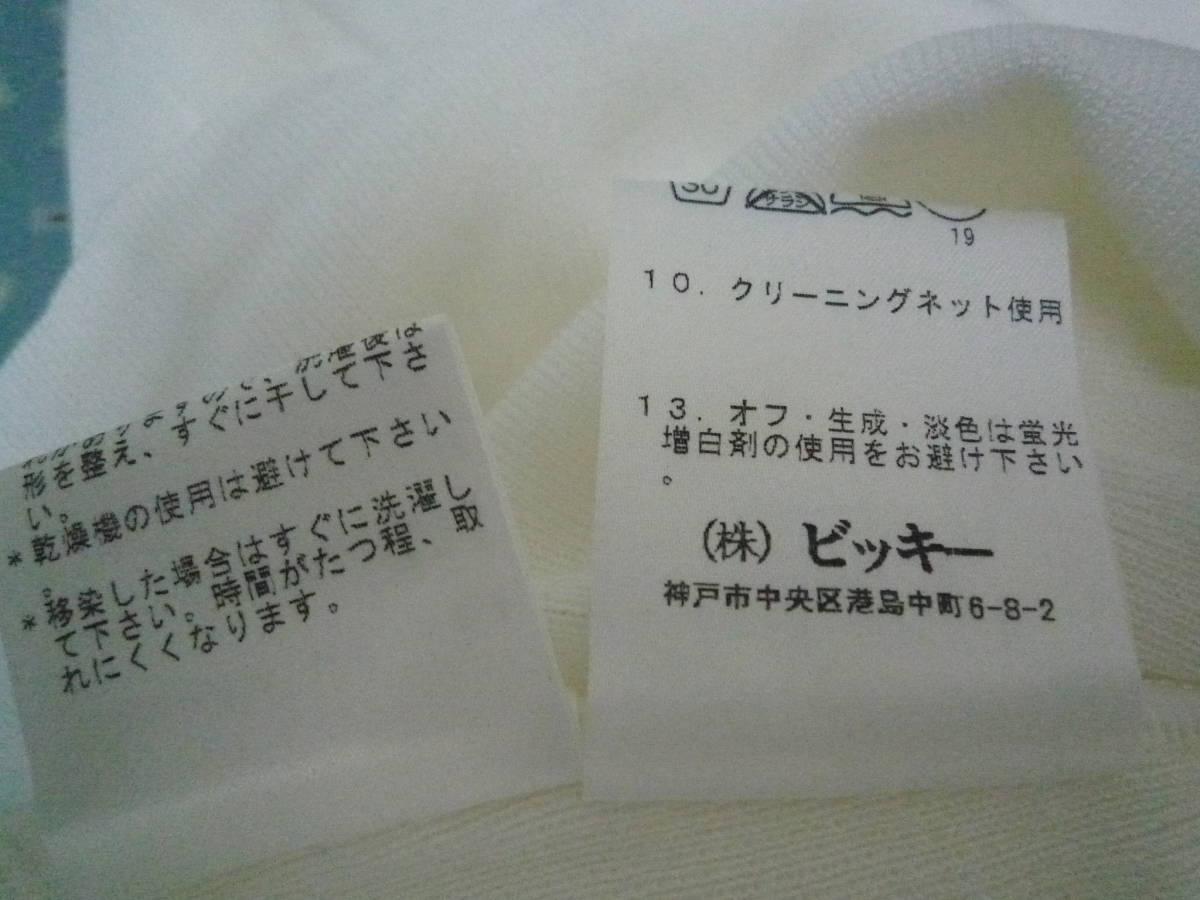 れがありますので、洗濯後は
形を整え、すぐに干して下さ
い。
*乾燥機の使用は避けて下さい
。
*移染した場合はすぐに洗濯し
て下さい。時間がたつ程、取
れにくくなります。
サラシ
19
10. クリーニングネット使用
13. オフ・生成・淡色は蛍光
増白剤の使用をお避け下さい
。
(株) ビッキー
神戸市中央区港島中町6-8-2